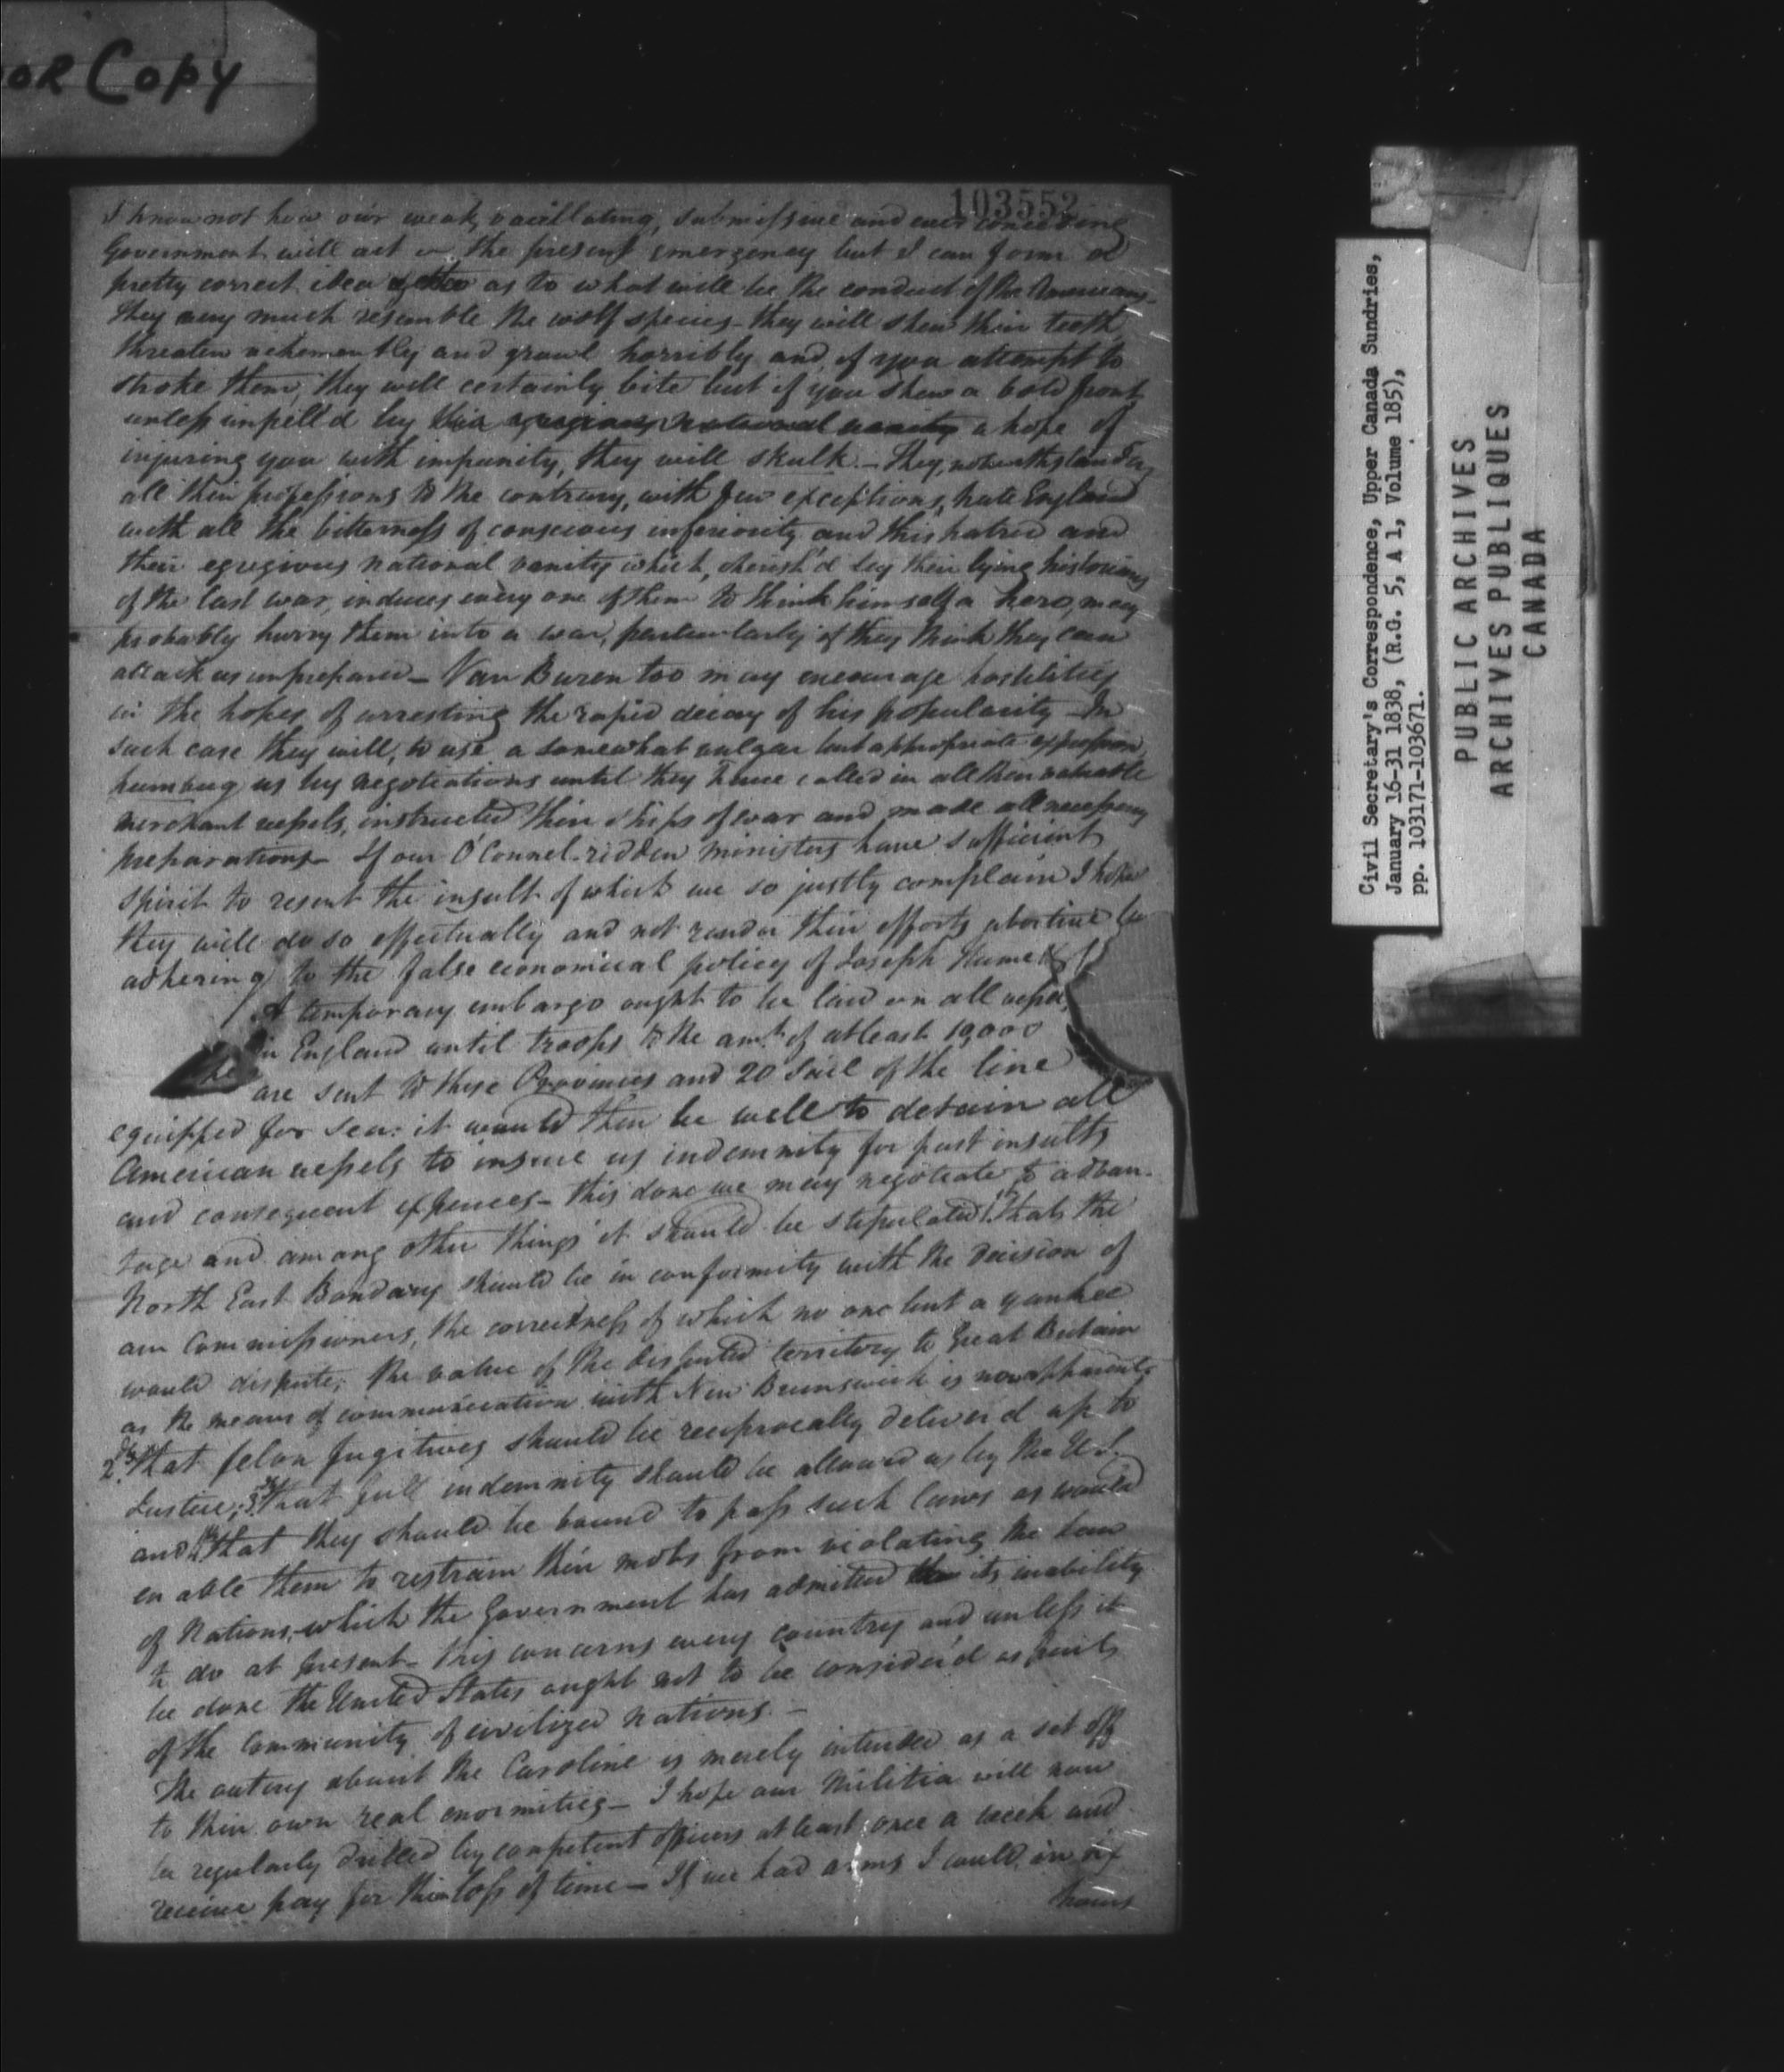 OR Copy
103552
I know not how our weak, vacillating, submissive and ever conceding
Government will act in the present emergency but I can form a
pretty correct idea as to what will be the conduct of the Americans-
They very much resemble the wolf species - they will shew their teeth,
threaten vehemently and growl horribly and, if you attempt to
stroke them, they will certainly bite but if you shew a bold front,
unless impell'd by their egregious national vanity a hope of
injuring you with impunity, they will skulk. - They, notwithstanding
all their professions to the contrary, with few exceptions, hate England
with all the bitterness of conscious inferiority and this hatred and
their egregious national vanity which, cherish'd by their lying historians
of the last war, induces every one of them to think himself a hero, may
probably hurry them into a war, particularly if they think they can
attack us unprepared - Van Buren too may encourage hostilities
in the hopes of arresting the rapid decay of his popularity - In
such case they will, to use a somewhat vulgar but appropriate expression,
humbug us by negotiations until they have called in all their valuable
merchant vessels, instructed their ships of war and made all necessary
preparations - If our O'Connel-ridden ministers have sufficient
spirit to resent the insult of which we so justly complain I hope
they will do so effectually and not render their efforts abortive by
adhering to the false economical policy of Joseph Hume &
A temporary embargo ought to be laid on all
in England until troops to the amt. of at least 10,000
are sent to these Provinces and 20 Sail of the line
equipped for sea: it would then be well to detain all
American vessels to insure us indemnity for past insults
and consequent expences - this done we may negotiate to advan-
tage and among other things it should be stipulated 1st. That the
North East Boundary should be in conformity with the decision of
our Commissioners, the correctness of which no one but a yankee
would dispute; the value of the disputed territory to Great Britain
as the means of communication with New Brunswick is now apparent
2dly. That felon fugitives should be reciprocally deliver'd up to
Justice; 3dly That full indemnity should be allowed us by the U.S.
and 4thly That they should be bound to pass such laws as would
enable them to restrain their mobs from violating the Law
of Nations, which the Government has admitted its inability
to do at present - this concerns every country and unless it
be done the United States ought not to be consider'd as part
of the Community of civilized nations. -
The outcry about the Caroline is merely intended as a set off
to their own real enormities - I hope our Militia will now
be regularly drilled by competent officers at least once a week and
receive pay for their loss of time - If we had arms I could, in six
hours
Civil Secretary's Correspondence, Upper Canada Sundries,
January 16-31 1838, (R.G. 5, A 1, Volume 185),
pp. 103171-103671.
PUBLIC ARCHIVES
ARCHIVES PUBLIQUES
CANADA